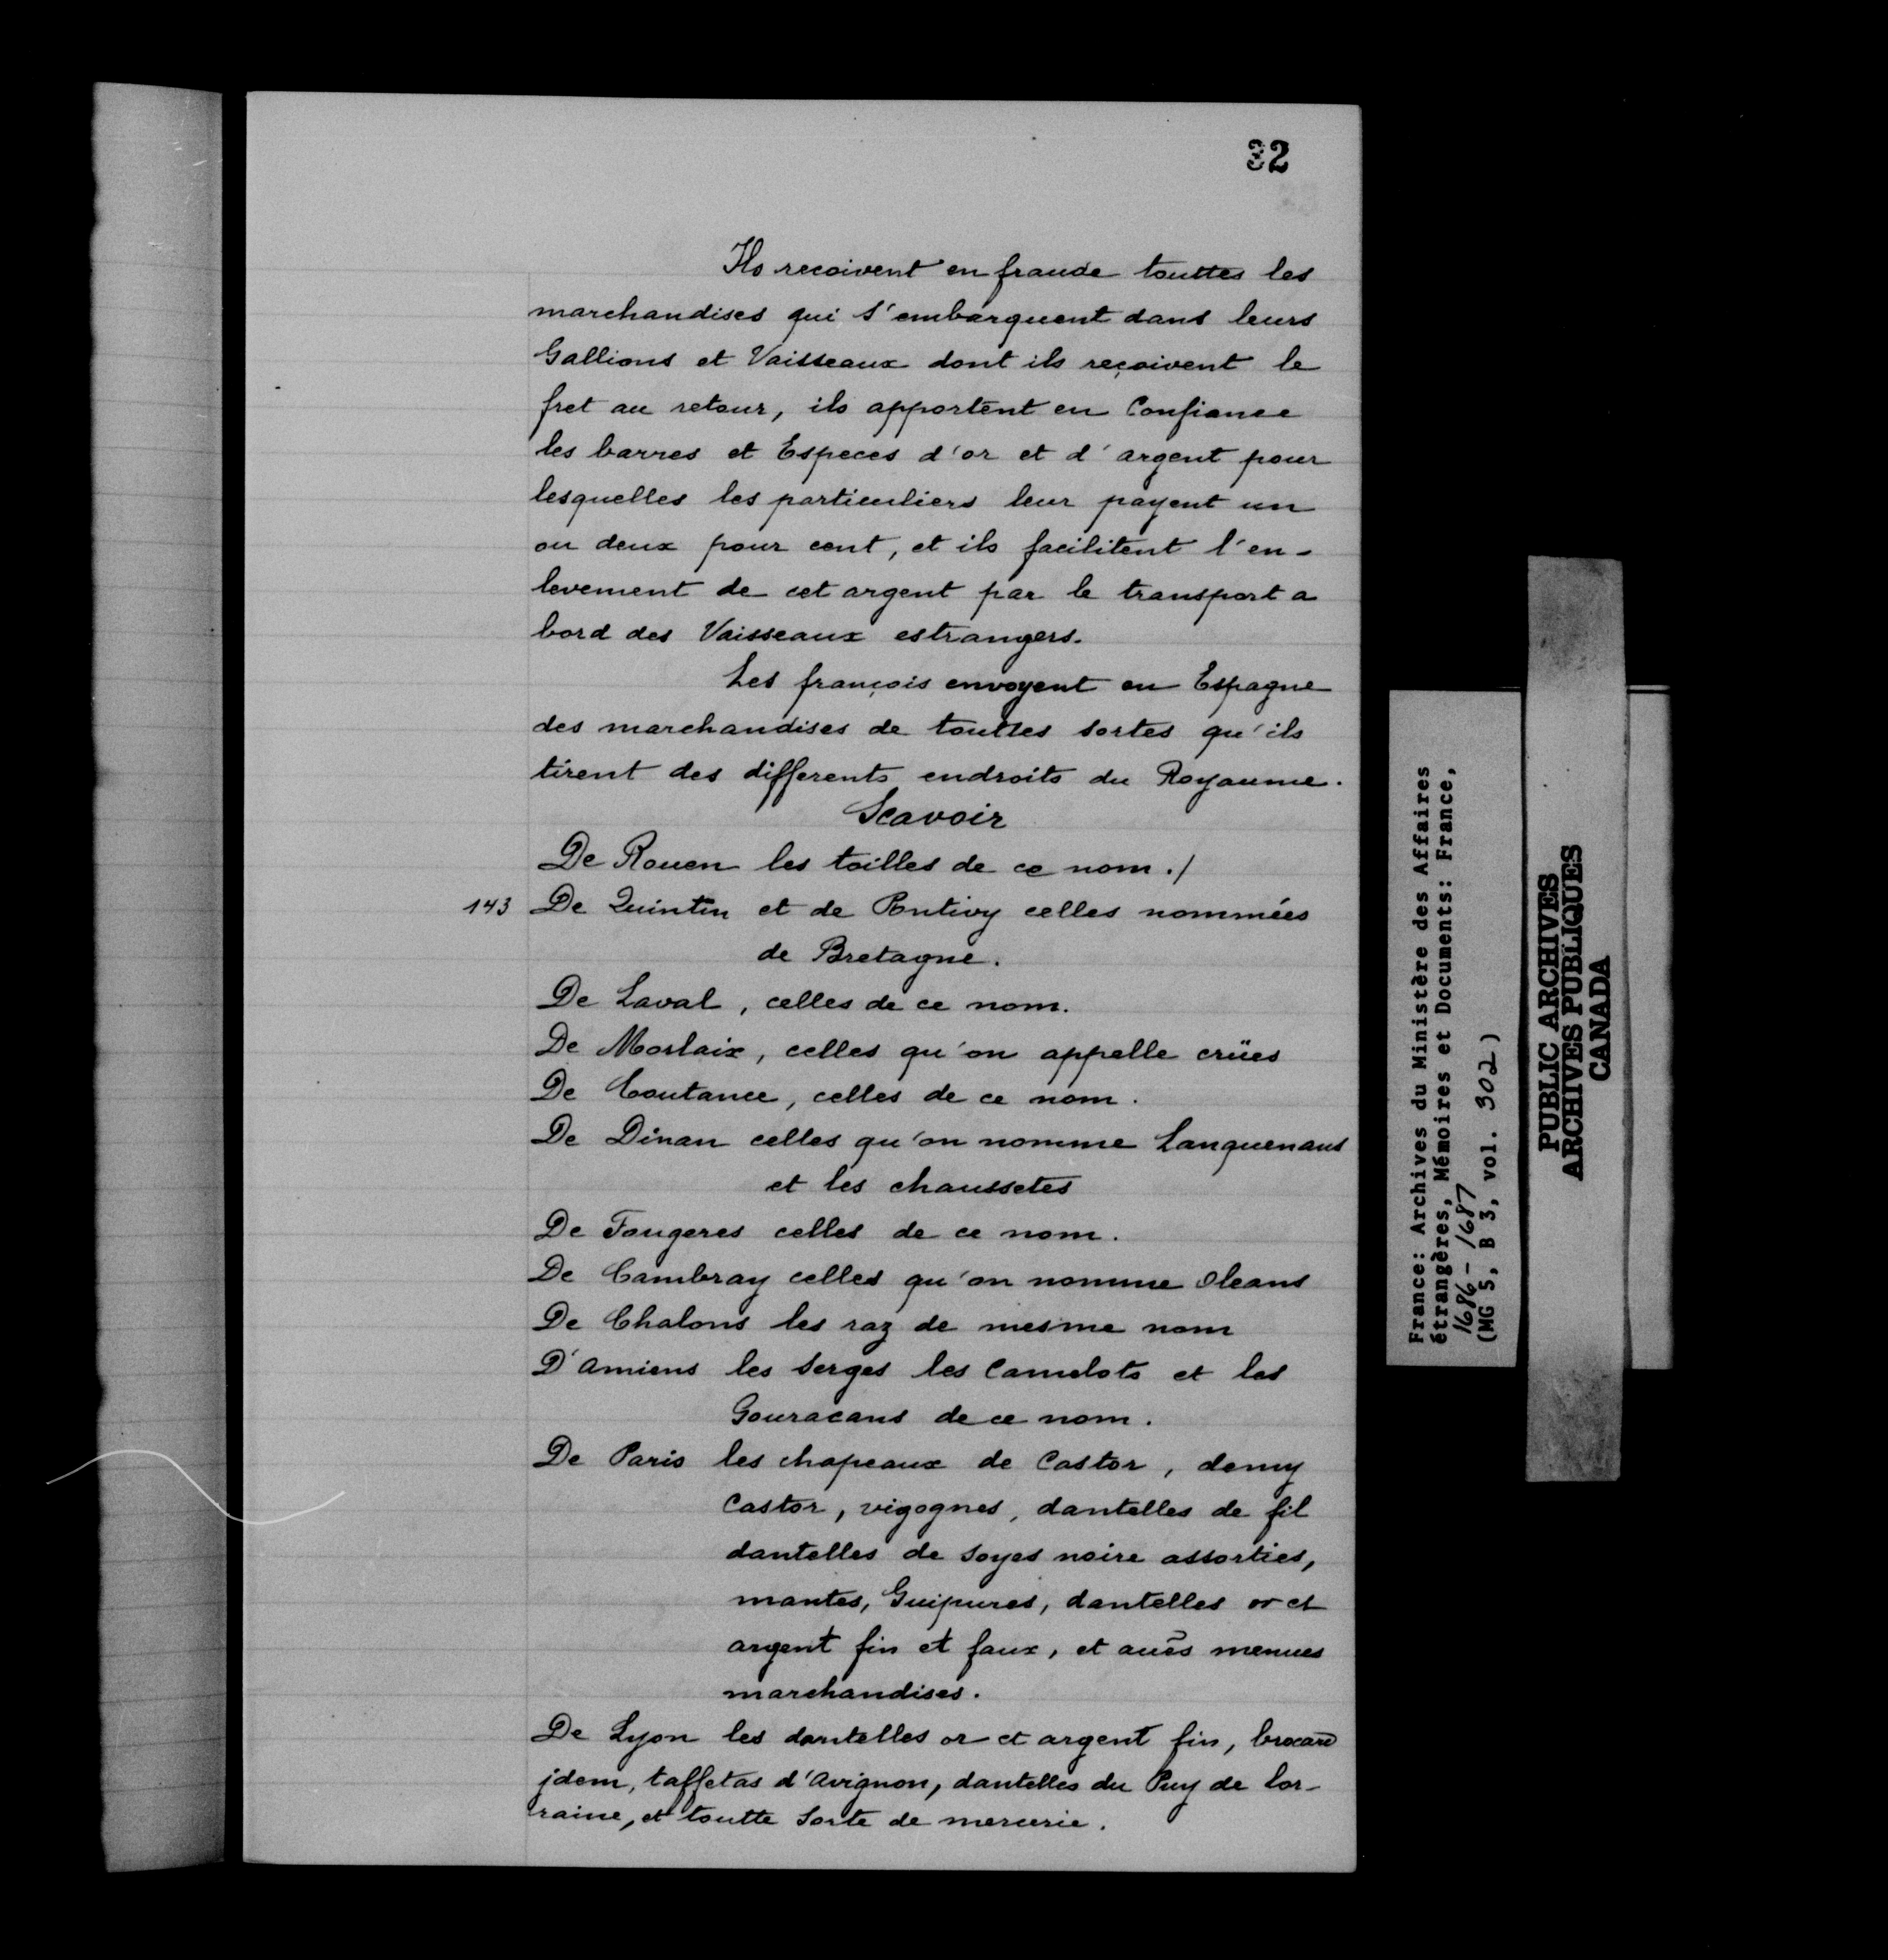 32
Ils recoivent en fraude touttes les
marchandises qui s'embarquent dans leurs
Gallions et Vaisseaux dont ils reçoivent le
fret au retour, ils apportent en Confiance
les barres et Especes d'or et d'argent pour
lesquelles les particuliers leur payent un
ou deux pour cent, et ils facilitent l'en-
levement de cet argent par le transport a
bord des Vaisseaux estrangers.
Les françois envoyent en Espagne
des marchandises de touttes sortes qu'ils
tirent des differents endroits du Royaume.
Scavoir
De Rouen les toilles de ce nom ./
143 De Quintin et de Pontivy celles nommées
de Bretagne.
De Laval, celles de ce nom.
De Morlaix, celles qu'on appelle crües
De Coutance, celles de ce nom.
De Dinan celles qu'on nomme Languenans
et les chaussetes
De Fougeres celles de ce nom.
De Cambray celles qu'on nomme Oleans
De Chalons les raz de mesme nom
D'amiens les Serges les Camelots et les
Gouracans de ce nom.
De Paris les chapeaux de Castor, demy
Castor, vigognes, dantelles de fil
dantelles de soyes noire assorties,
mantes, Guipures, dantelles or et
argent fin et faux, et aues menues
marchandises.
De Lyon les dantelles or et argent fin, brocard
jdem, taffetas d'Avignon, dantelles du Puy de lor-
raine, et toutte sorte de mercerie.
France: Archives du Ministère des Affaires
étrangères, Mémoires et Documents: France,
1686-1687
(MG 5, B 3, vol. 302)
PUBLIC ARCHIVES
ARCHIVES PUBLIQUES
CANADA